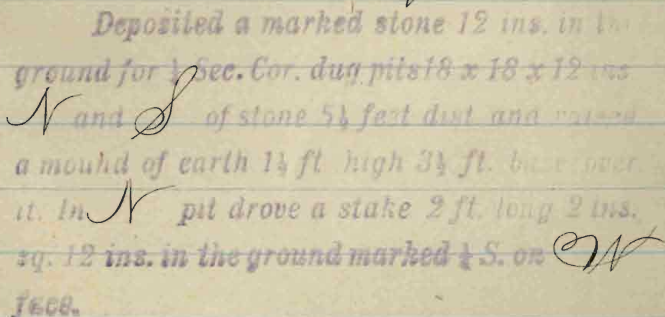 Deposited a marked stone 12 ins. in the
ground for ¼ Sec. Cor. dug pits 18 x 18 x 12 ins
N and S of stone 5½ feet dist and raised
a mound of earth 1½ ft high 3½ ft. base over
it. In N pit drove a stake 2 ft. long 2 ins.
sq. 12 ins. in the ground marked ¼ S. on W
face.